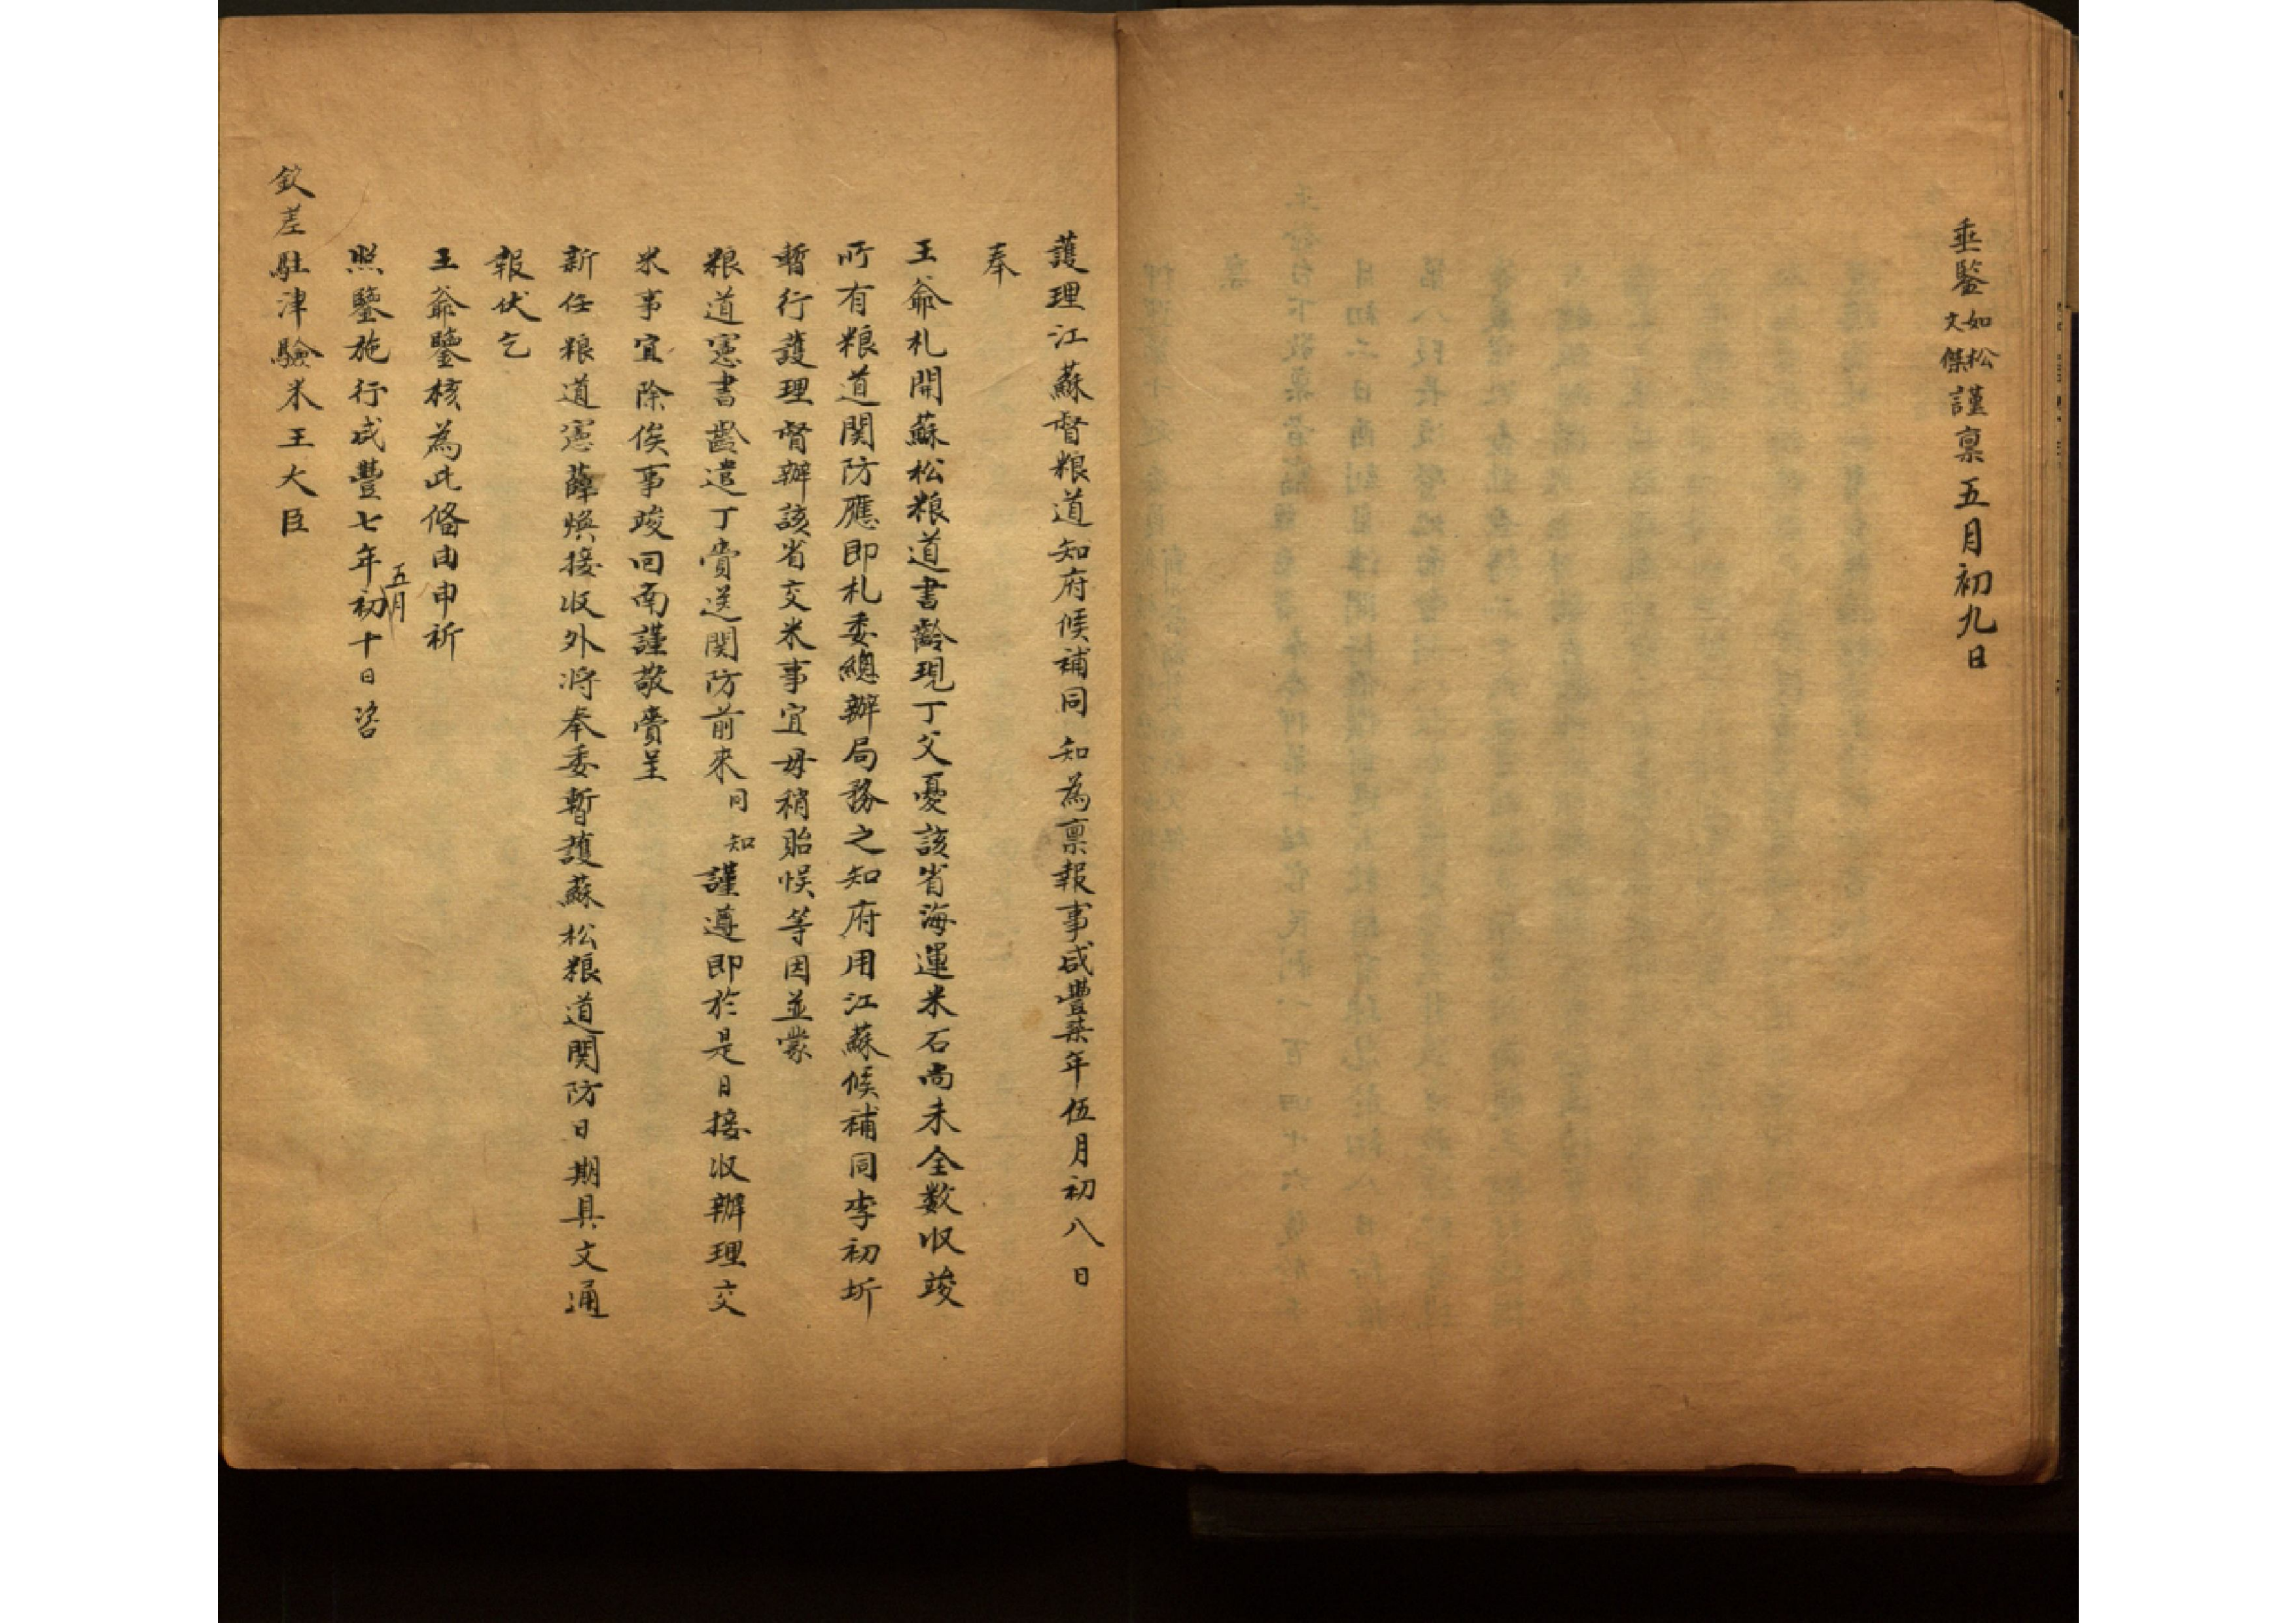 垂鑒如松文傑謹稟五月初九日
護理江蘇督粮道知府候補同知為稟報事咸豐柒年伍月初八日
奉
王爺札開蘇松粮道書齡現丁父憂該省海運米石尚未全数収竣
所有粮道関防應即札委總辦局務之知府用江蘇候補同李初圻
暫行護理督辦該省交米事宜毋稍貽悮等因並蒙
粮道憲書齡遣丁賫送関防前來同知謹遵即於是日接収辦理交
米事宜除俟事竣回南謹敬賫呈
新任粮道憲薛煥接収外將奉委暫護蘇松粮道関防日期具文通
報伏乞
王爺鑒核為此俻由申祈
照鑒施行咸豐七年五月初十日咨
欽差駐津驗米王大臣